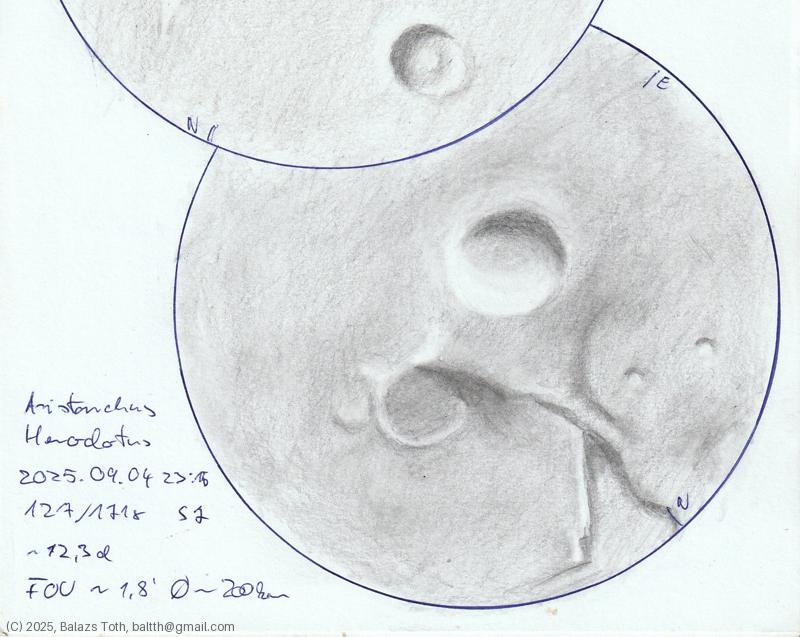 N
E
Aristarchus
Herodotus
2025.09.04 23:15
127/171x S7
~12,3d
N
FOV ~ 1,8' Ø ~ 200km
(C) 2025, Balazs Toth, baltth@gmail.com